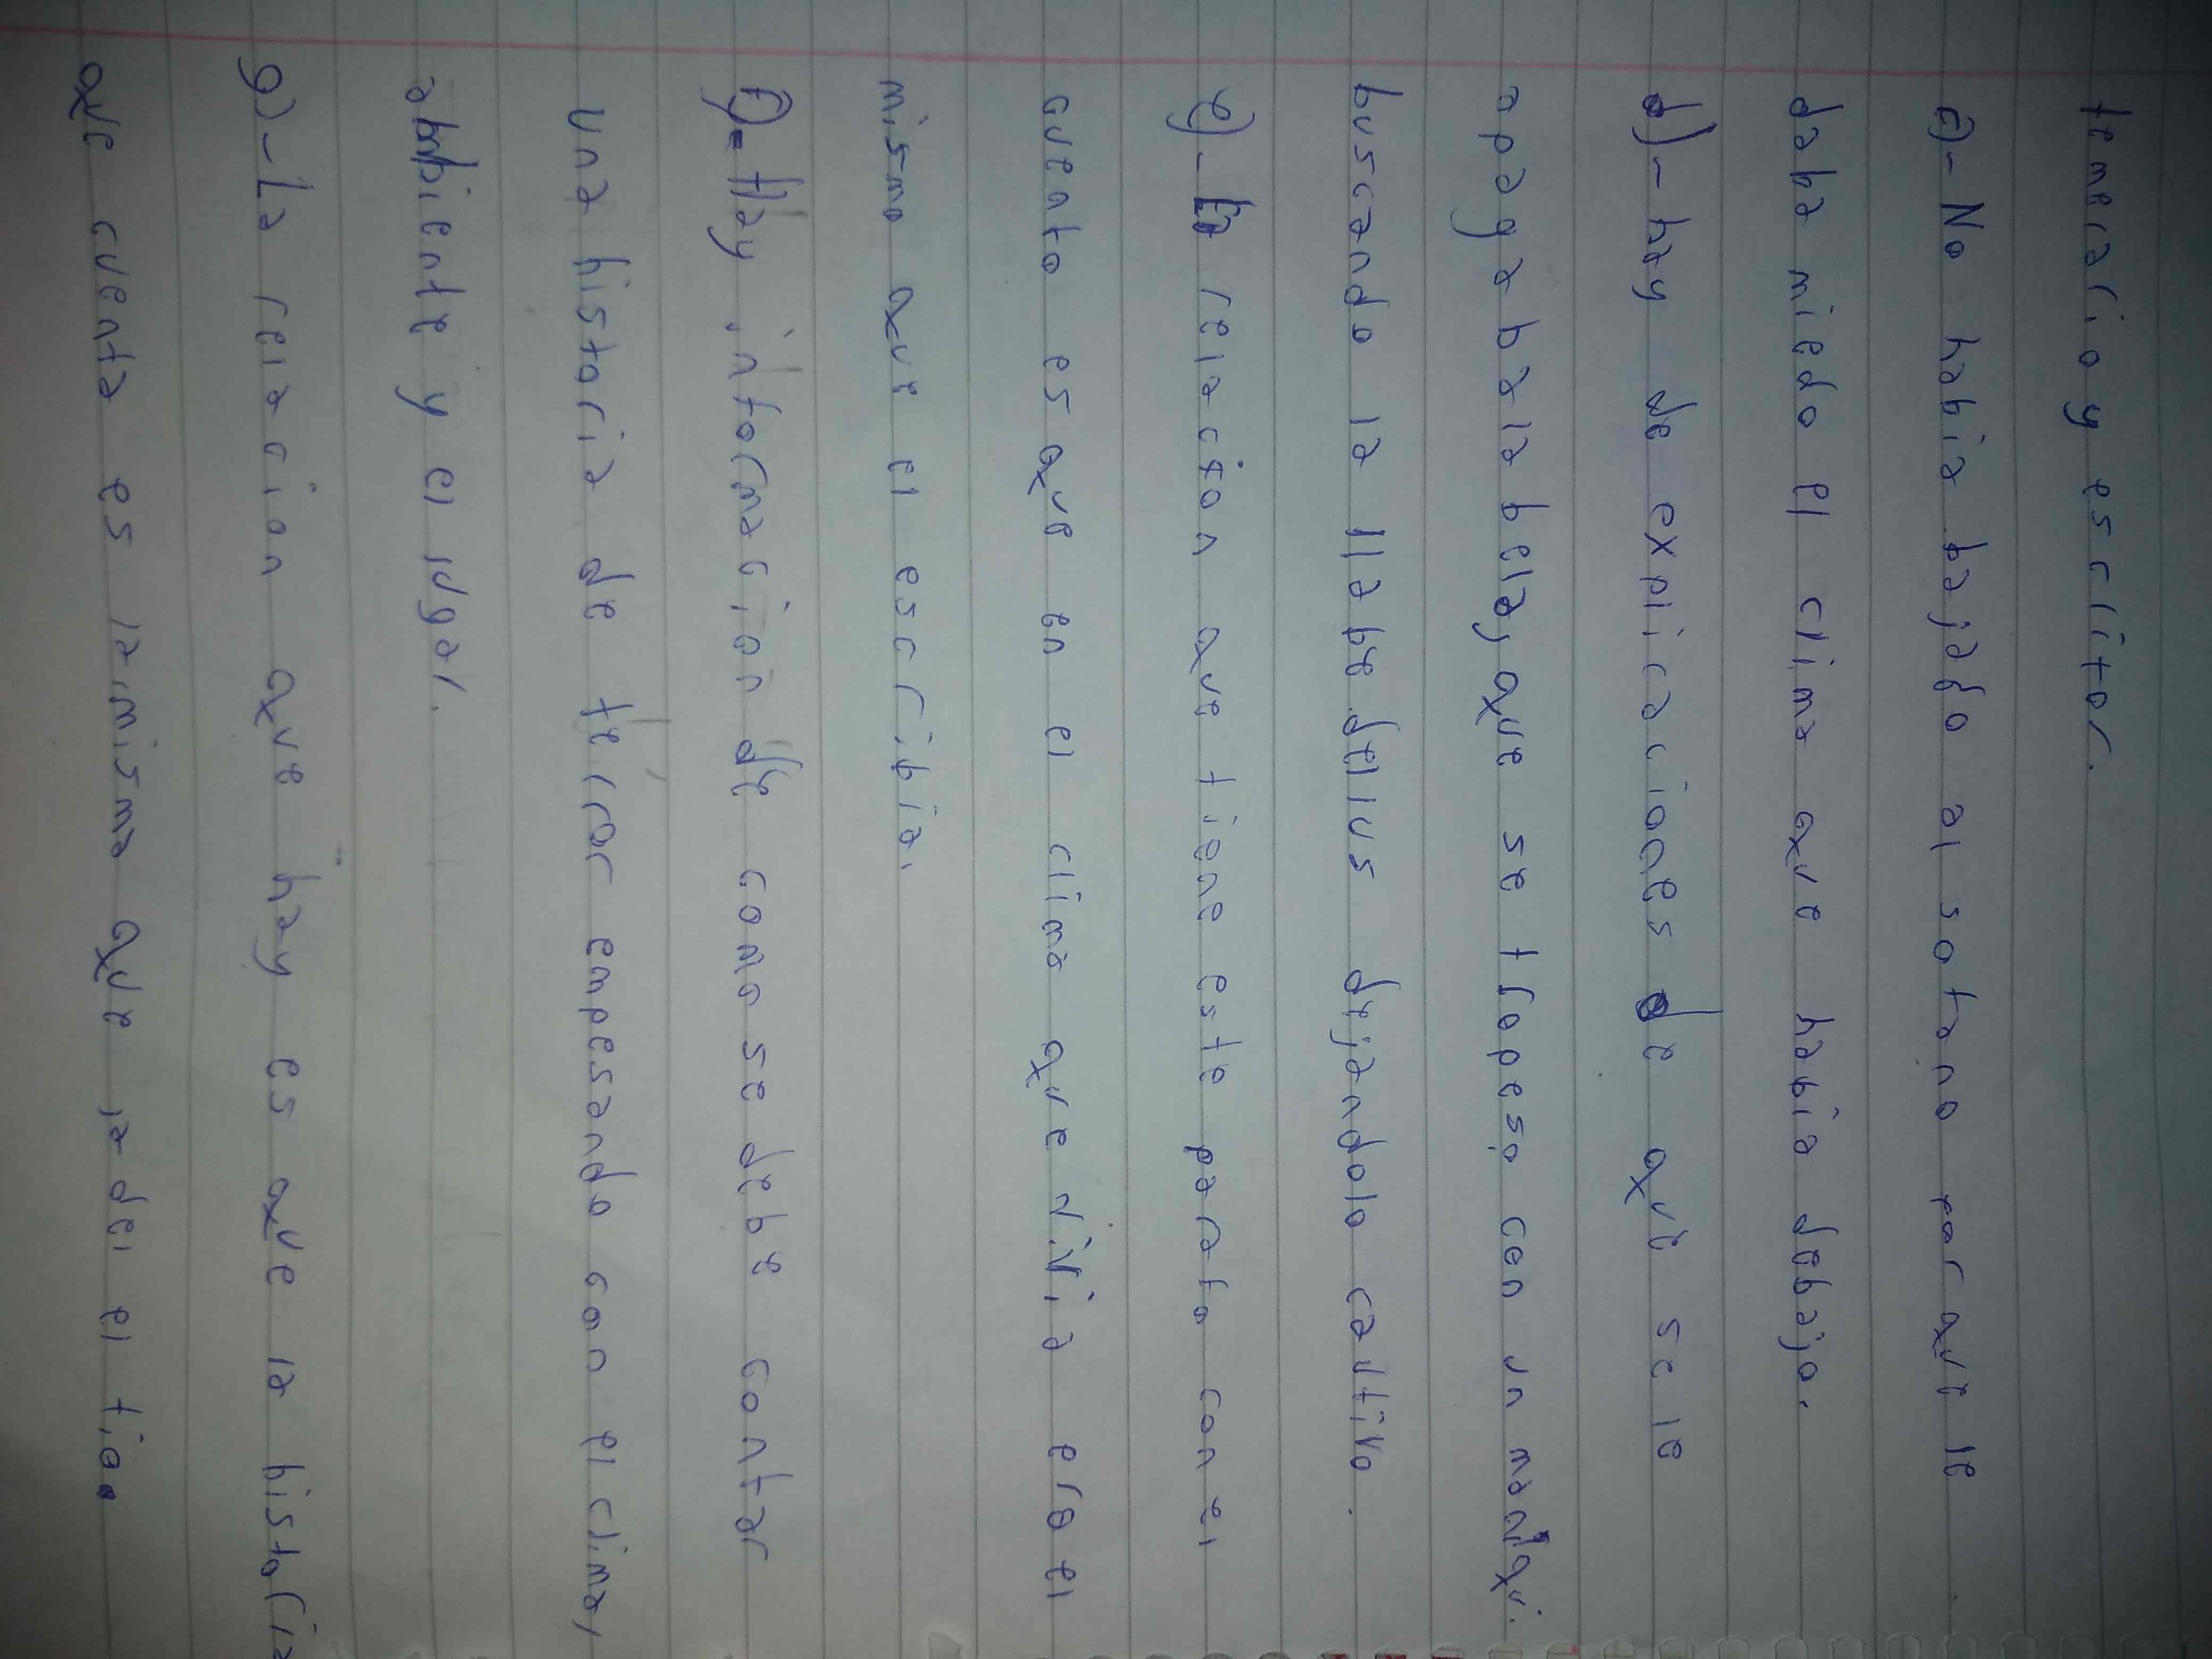 temerario y escritor.
c)- No habia bajado al sotano por que le
daba miedo el clima que habia debajo.
d)- hay de explicaciones de que se le
apaga ba la bela, que se tropesó con un maniqui.
buscando la llabe de la salida dejandolo cautivo.
e)- La relación que tiene este parrafo con el
cuento es que en el clima que vivia era el
mismo que el escribia.
f)- Hay información de como se debe contar
una historia de terror empesando con el clima,
abbiente y el lugar.
g)- La relacion que hay es que la historia
que cuenta es la misma que la del tio.